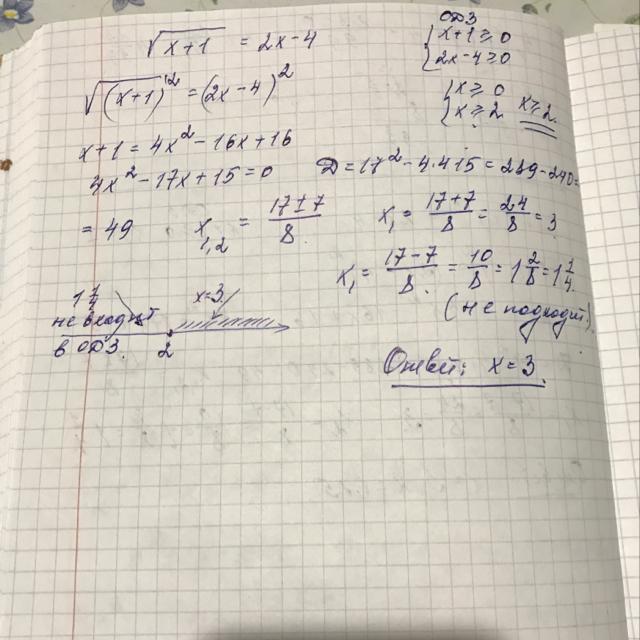 √x+1 = 2x-4
ОДЗ
{x+1≥0
{2x-4≥0
√(x+1)² = (2x-4)²
{x≥0
{x≥2 x≥2
x+1=4x²-16x+16
4x²-17x+15=0
D=17²-4·4·15=289-240=
=49
x₁,₂ = 17±7/8
x₁ = 17+7/8 = 24/8 = 3
x₁ = 17-7/8 = 10/8 = 1 2/8 = 1 1/4
(не подходит).
1 1/4 не входит в ОДЗ.
x=3
2
Ответ: x=3.